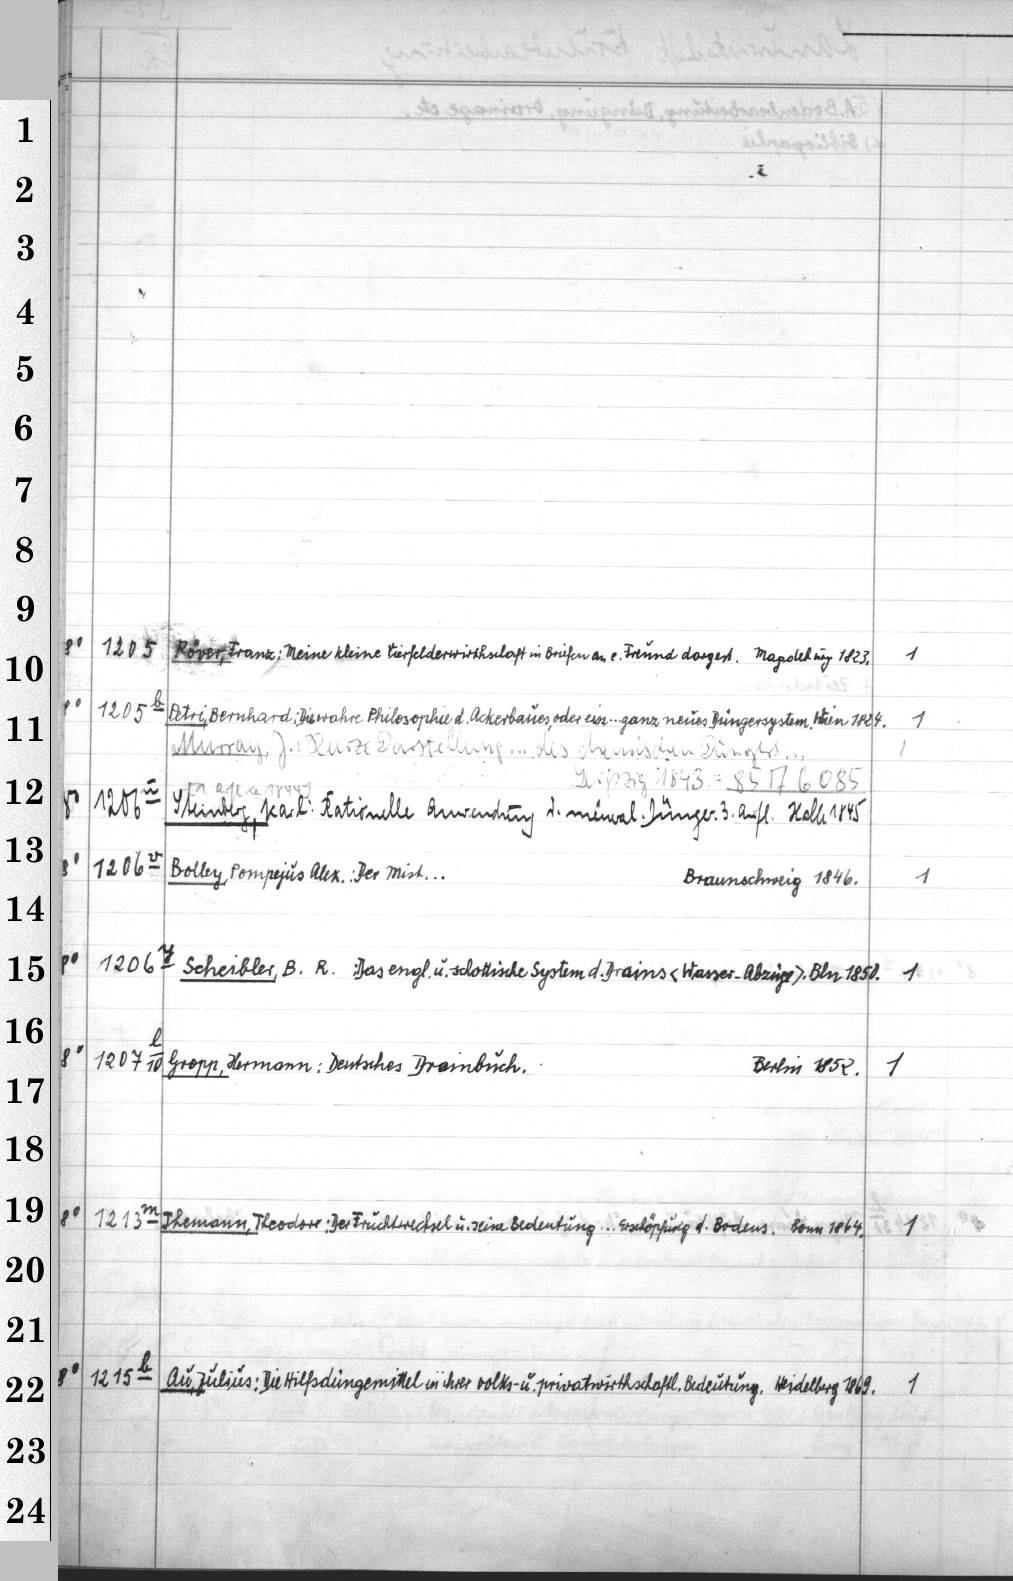 1
2
3
4
5
6
7
8
9
10 8° 1205 Röver, Franz: Meine kleine Vierfelderwirthschaft in Briefen an e. Freund dargest. Magdeburg 1823. 1
11 8° 1205 b Petri, Bernhard: Die wahre Philosophie d. Ackerbaues, oder ein ... ganz neues Düngersystem. Wien 1824. 1
Murray, J.: Kurze Darstellung ... des chemischen Düngers ... 1
Leipzig 1843 = 8517 6085
12 8° 1206 n Steinberg, Karl: Rationelle Anwendung d. mineral. Dünger. 3. Aufl. Halle 1845
13 8° 1206 v Bolley, Pompejus Alex.: Der Mist... Braunschweig 1846. 1
14
15 8° 1206 y Scheibler, B. R. : Das engl. u. schottische System d. Drains <Wasser-Abzüge>. Bln 1850. 1
16
17 8° 1207 l/10 Gropp, Hermann: Deutsches Drainbuch. Berlin 1852. 1
18
19 8° 1213 m Themann, Theodore: Der Fruchtwechsel u. seine Bedeutung ... Erschöpfung d. Bodens. Bonn 1864. 1
20
21
22 8° 1215 b Au, Julius: Die Hilfsdüngemittel in ihrer volks- u. privatwirthschaftl. Bedeutung. Heidelberg 1869. 1
23
24